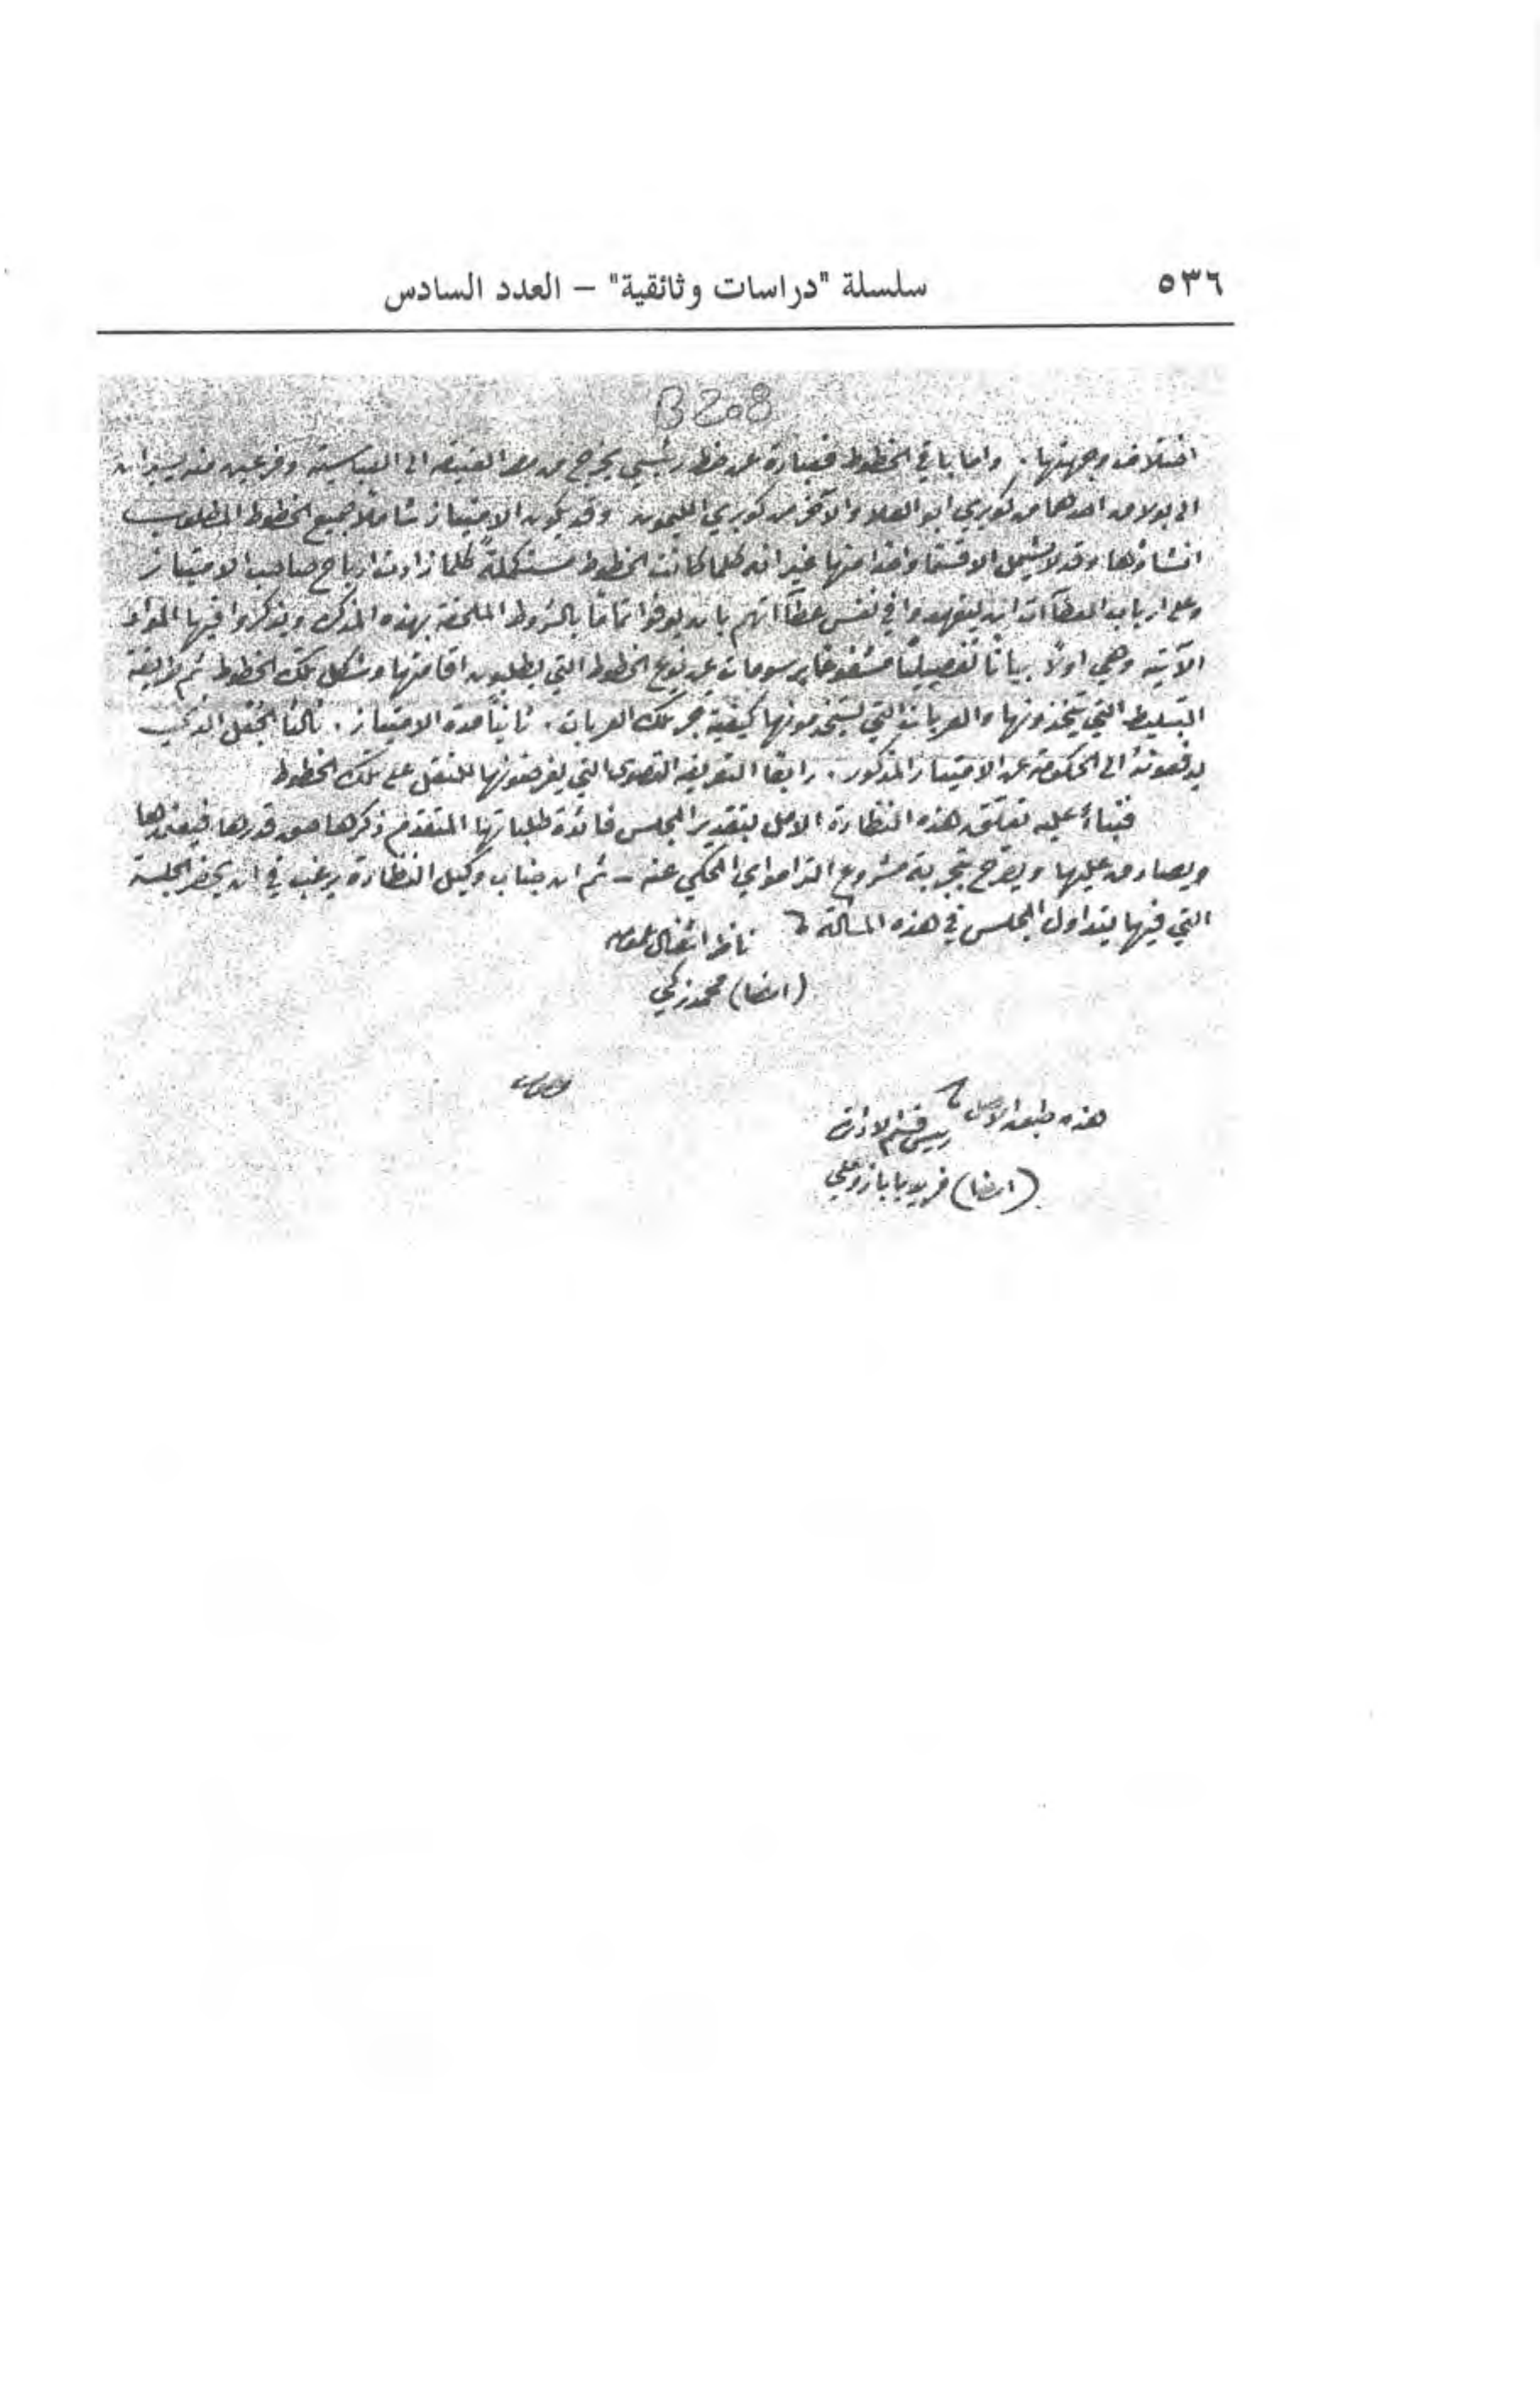 ٥٣٦
سلسلة "دراسات وثائقية" – العدد السادس
B 208
اختلاف وجهتها . واما باقي الخطوط فعبارة عن خط رئيسي يخرج من مصر العتيقة الى العباسية وفرعين منه يسيران
الى بولاق احدهما من كوبري ابو العلا والآخر من كوبري الليمون وقد يكون الامتياز شاملاً جميع الخطوط المطلوب
انشاؤها وقد لا يشمل الا قسما واحدا منها غير انه كلما كانت الخطوط مستكملةً كلما زادت ارباح صاحب الامتياز
وعلى ارباب العطآات ان يتعهدوا في نفس عطآاتهم بان يوفوا تماما بالشروط الملحقة بهذه المذكرة ويذكروا فيها المواد
الآتية وهي اولاً بياناً تفصيلياً مشفوعا برسومات عن نوع الخطوط التي يطلبون اقامتها وشكل تلك الخطوط ثم طريقة
التبليط التي يتخذونها والعربات التي يستخدمونها كيفية جر تلك العربات . ثانياً مدة الامتياز . ثالثا الجعل الذي
يدفعونه الى الحكومة عن الامتياز المذكور . رابعا التعريفة القصوى التي يفرضونها للنقل على تلك الخطوط
فبناءً عليه تعلق هذه النظارة الامل بتقدير المجلس فائدة طلباتها المتقدم ذكرها حق قدرها فيعتمدها
ويصادق عليها ويصرح بتجربة مشروع الترامواي المحكي عنه – ثم ان جناب وكيل النظارة يرغب في ان يحضر الجلسة
التي فيها يتداول المجلس في هذه المسألة
ناظر اشغال عموميه
(امضا) محمد زكي
هذه طبق الاصل
رييس قسم الادارة
(امضا) فريد بابازوغلي